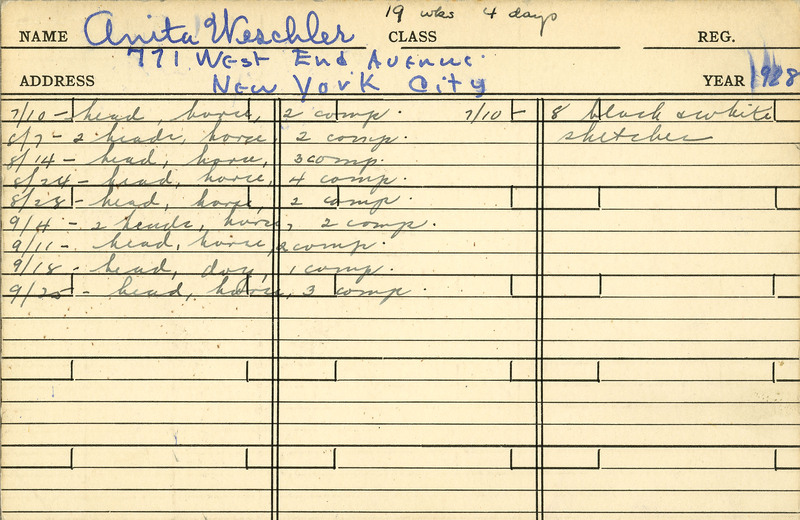 19 wks 4 days
NAME Anita Weschler CLASS REG.
771 West End Avenue.
ADDRESS New York City YEAR 1928
7/10 - head, horse, 2 comp. 7/10 - 8 black & white
8/7 - 2 heads, horse, 2 comp. sketches
8/14 - head, horse, 3 comp.
8/24 - head, horse, 4 comp.
8/28 - head, horse, 2 comp.
9/4 - 2 heads, horse, 2 comp.
9/11 - head, horse, 2 comp.
9/18 - head, dog, 1 comp.
9/25 - head, horse, 3 comp.